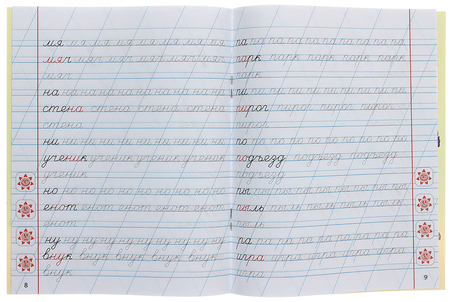 мя мя мя мя мя мя мя мя
мяч мяч мяч мяч мяч мяч мяч
мяч
на на на на на на на на на
стена стена стена стена
стена
ни ни ни ни ни ни ни ни ни
ученик ученик ученик ученик
ученик
но но но но но но но но
енот енот енот енот енот
ну ну ну ну ну ну ну ну ну
внук внук внук внук внук внук
внук
8
па па па па па па па па па
парк парк парк парк парк
парк
пи пи пи пи пи пи пи пи
пирог пирог пирог пирог
пирог
по по по по по по по по по
подъезд подъезд подъезд
подъезд
пы пы пы пы пы пы пы пы
пыль пыль пыль пыль пыль
ра ра ра ра ра ра ра ра ра
игра игра игра игра игра
игра
9